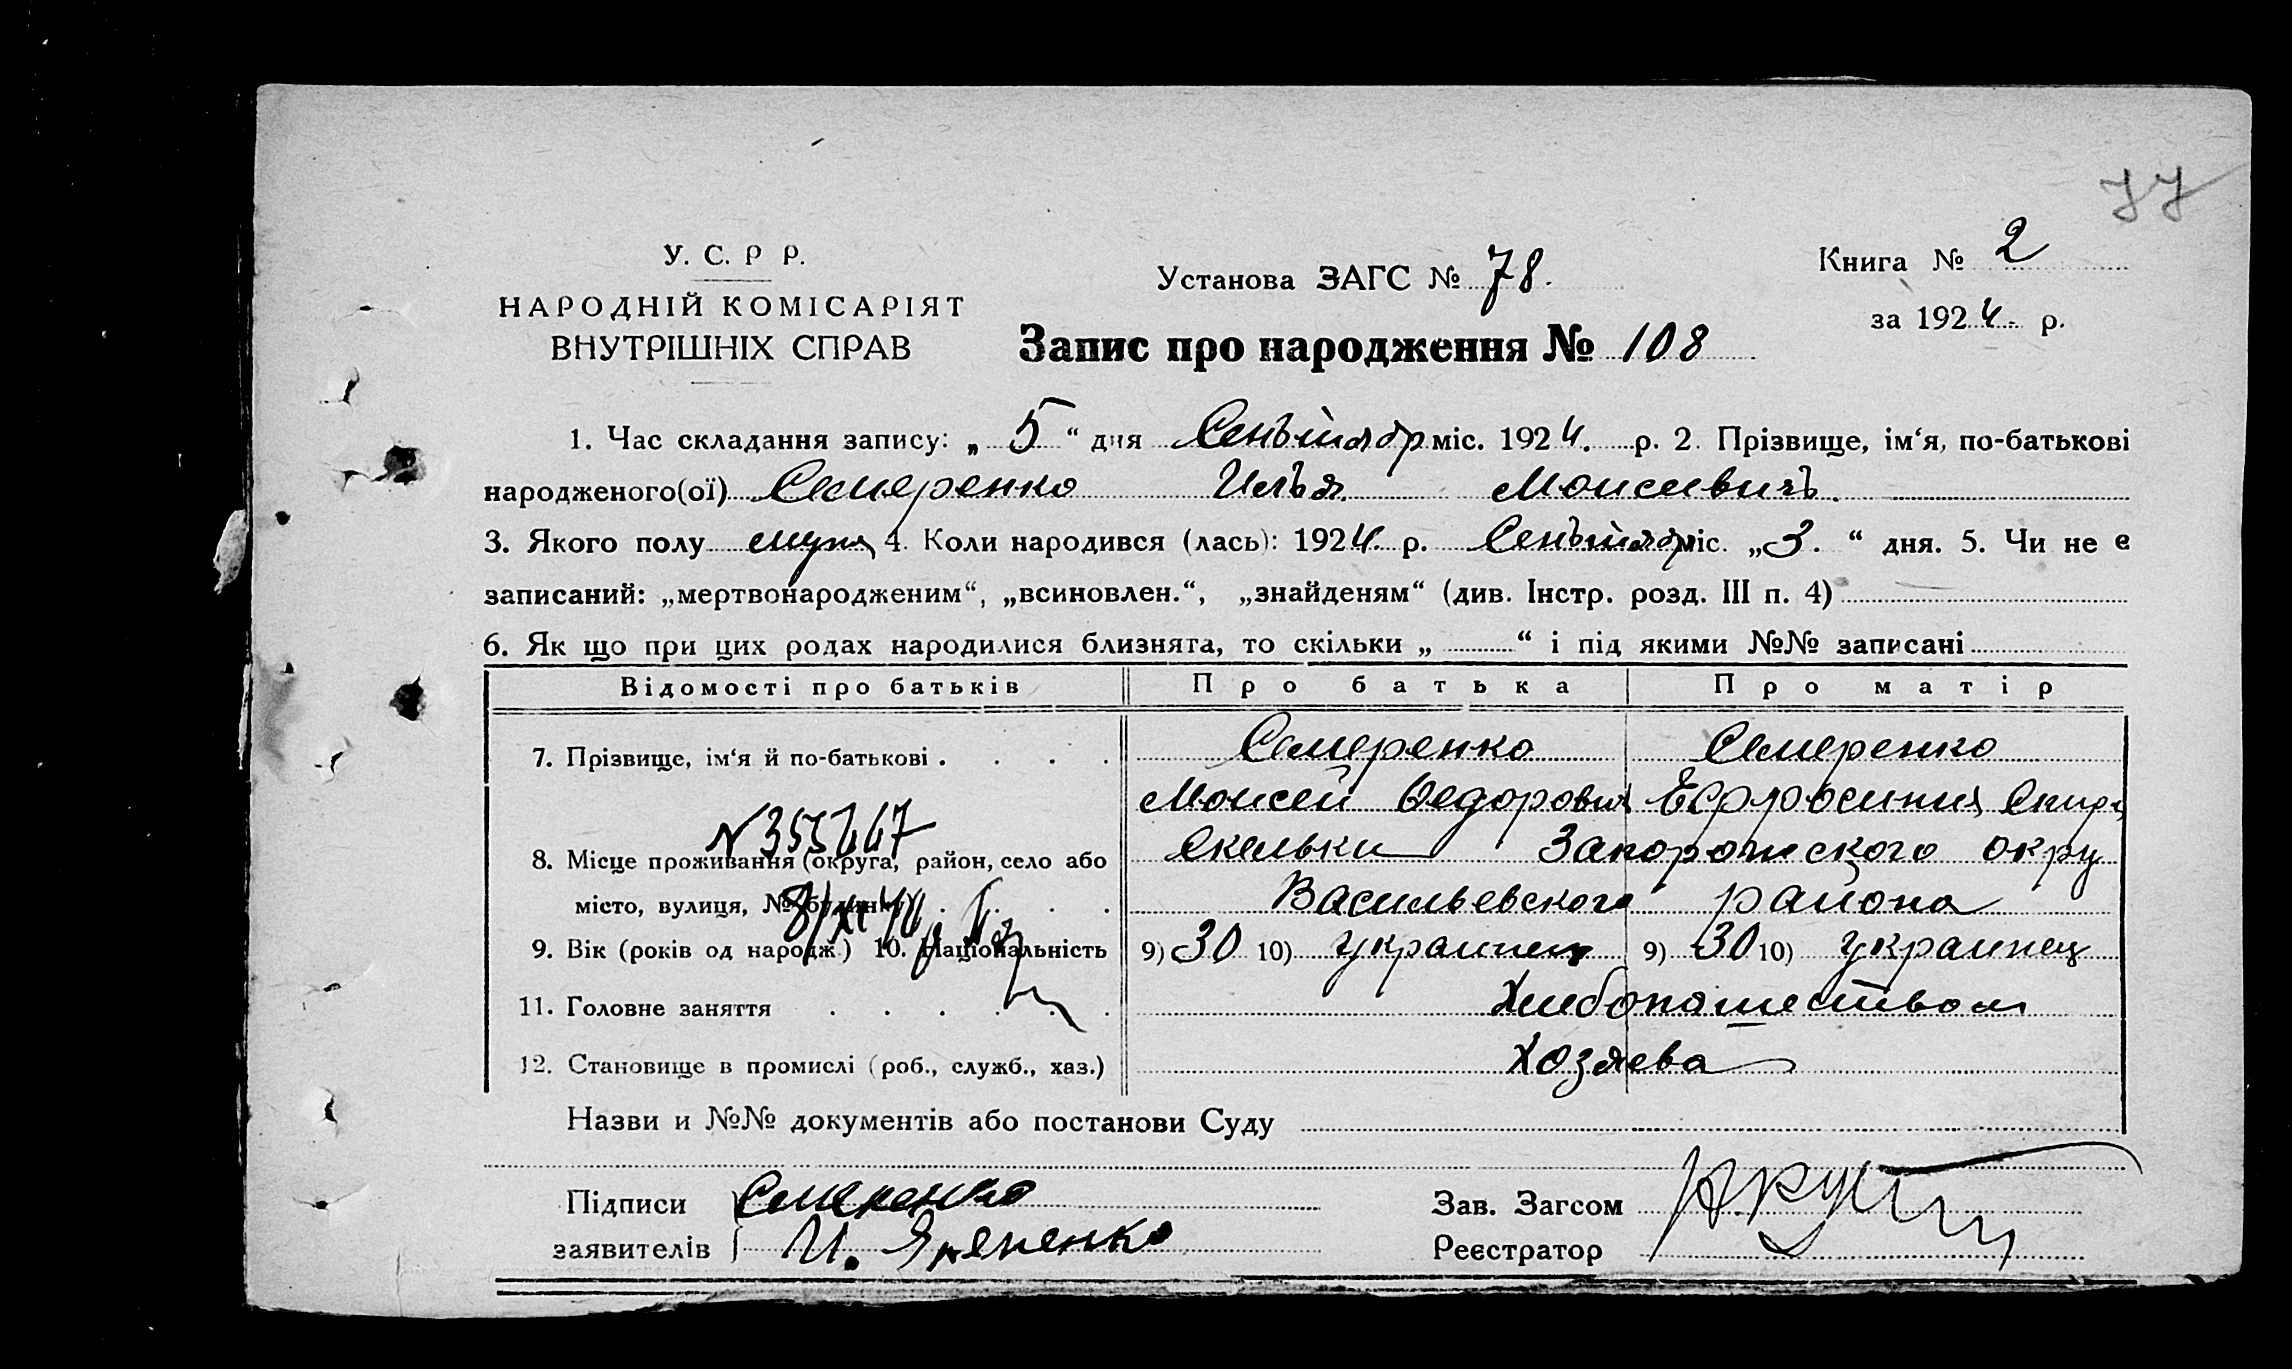 77
У. С. Р Р.
НАРОДНІЙ КОМІСАРІЯТ
ВНУТРІШНІХ СПРАВ
Установа ЗАГС № 78.
Книга № 2
за 1924 р.
Запис про народження № 108
1. Час складання запису: „ 5 “ дня Сентябр міс. 1924. р. 2. Прізвище, ім‘я, по-батькові
народженого(ої) Семеренко Илья Моисеевичъ.
3. Якого полу муж 4. Коли народився (лась): 1924. р. Сентябр міс. „3. “ дня. 5. Чи не є
записаний: „мертвонародженим“, „всиновлен.“, „знайденям“ (див. Інстр. розд. III п. 4)
6. Як що при цих родах народилися близнята, то скільки „ “ і під якими №№ записані
Відомості про батьків Про батька Про матір
7. Прізвище, ім‘я й по-батькові . . . . Семеренко Семеренко
Моисей Федорович Ефросиния Спир
8. Місце проживання (округа, район, село або Скельки Запорожского окру
місто, вулиця, № будинку) . . . . Васильевского района
9. Вік (років од народж.) 10. Національність 9) 30 10) украинец 9) 30 10) украинец
11. Головне заняття . . . . . . Хлебопашеством
12. Становище в промислі (роб., служб., хаз.) Хозяева
Назви и №№ документів або постанови Суду
Підписи Семеренко Зав. Загсом
заявителів И. Реєстратор